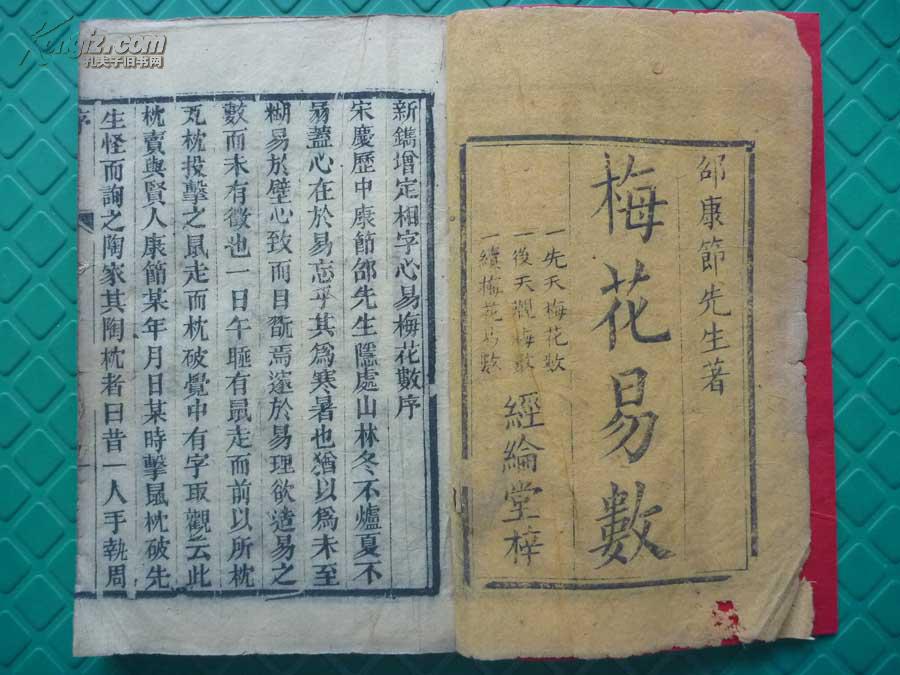 邵康節先生著
梅花易數
一先天梅花數
一後天觀梅數
一續梅花易數
經綸堂梓
新鐫增定相字心易梅花數序
宋慶歷中康節邵先生隱處山林冬不爐夏不
易蓋心在於易忘乎其為寒暑也猶以為未至
糊易於壁心致而目翫焉邃於易理欲造易之
數而未有徵也一日午睡有鼠走而前以所枕
瓦枕投擊之鼠走而枕破覺中有字取觀云此
枕賣與賢人康節某年月日某時擊鼠枕破先
生怪而詢之陶家其陶枕者曰昔一人手執周
序
Kongfz.com
孔夫子旧书网